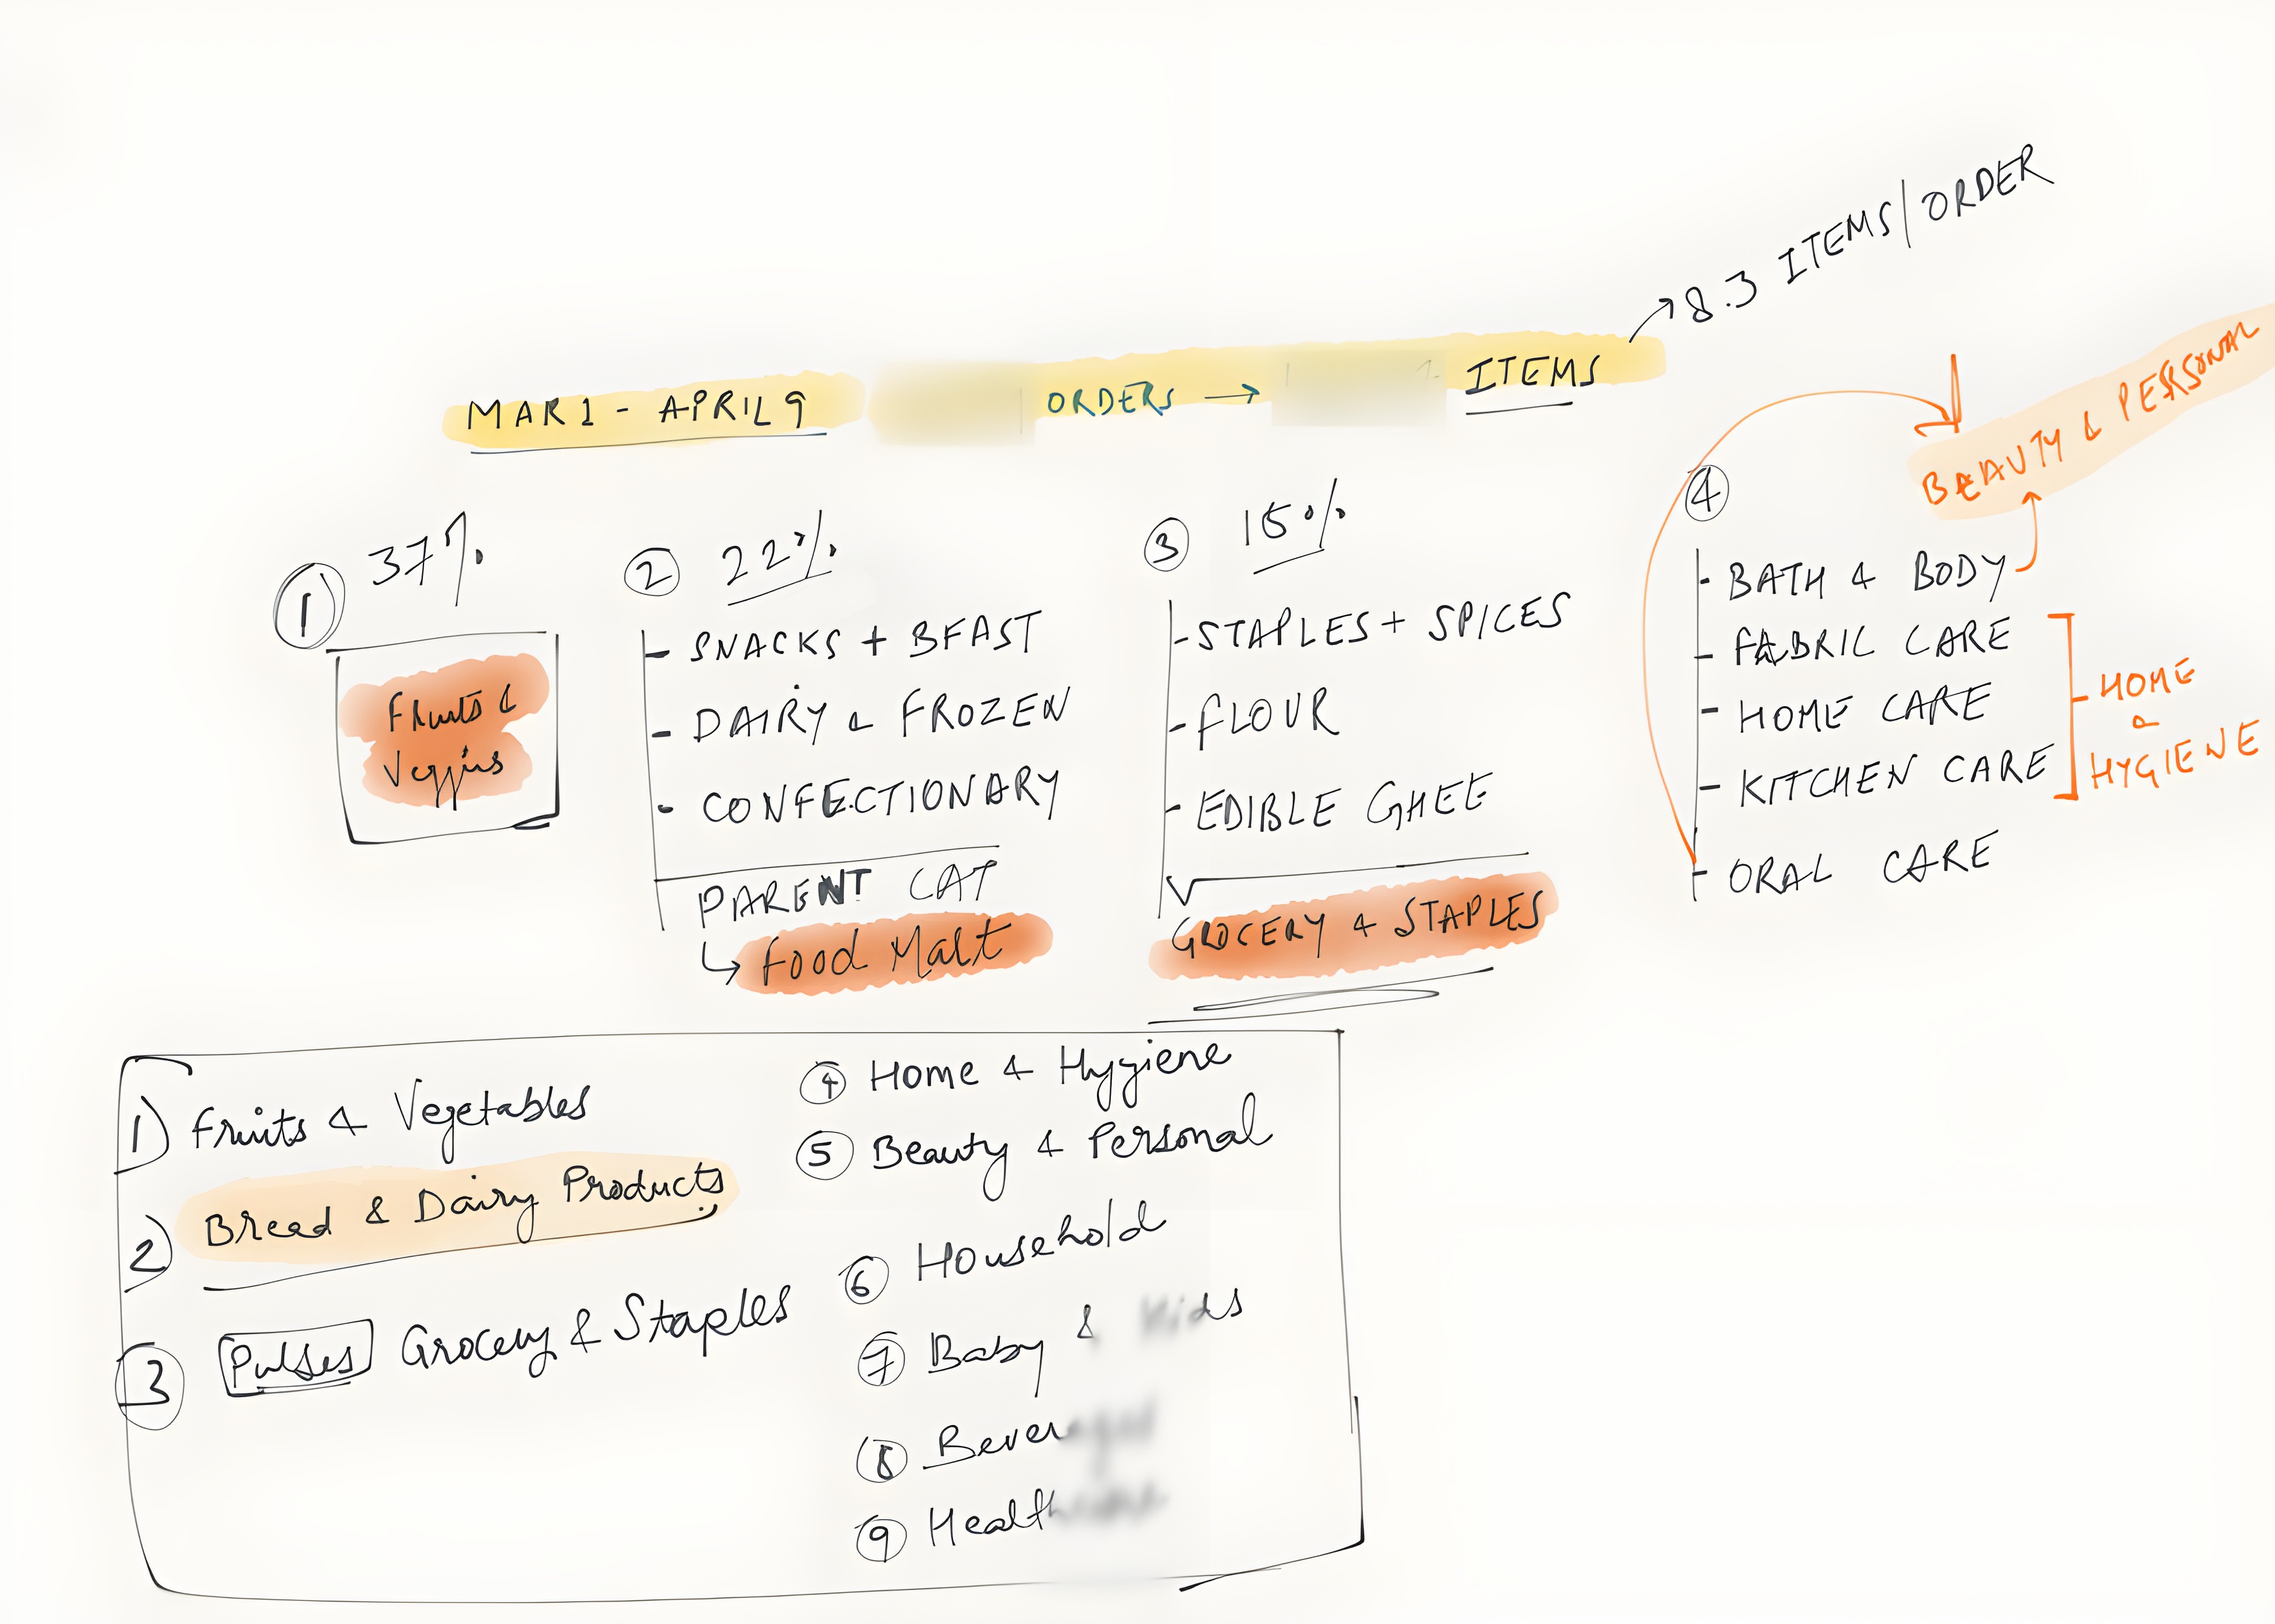 8.3 ITEMS/ORDER
MAR 1 - APRIL 9 ORDERS → ITEMS
BEAUTY & PERSONAL
① 37%
Fruits &
Veggies
② 22%
- SNACKS + BFAST
- DAIRY & FROZEN
- CONFECTIONARY
PARENT CAT
↳ Food Mart
③ 15%
- STAPLES + SPICES
- FLOUR
- EDIBLE GHEE
GROCERY & STAPLES
④
- BATH & BODY
- FABRIC CARE
- HOME CARE
- KITCHEN CARE
- ORAL CARE
HOME
&
HYGIENE
1) Fruits & Vegetables
2) Bread & Dairy Products
③ Pulses Grocery & Staples
④ Home & Hygiene
⑤ Beauty & Personal
⑥ Household
⑦ Baby &
⑧
⑨